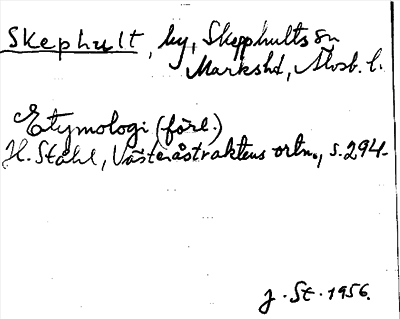 Skephult, by, Skepphults sn
Markshd, Älvsb. l.
Etymologi (förl.)
H. Ståhl, Västeråstraktens ortn., s. 294.
J. St. 1956.